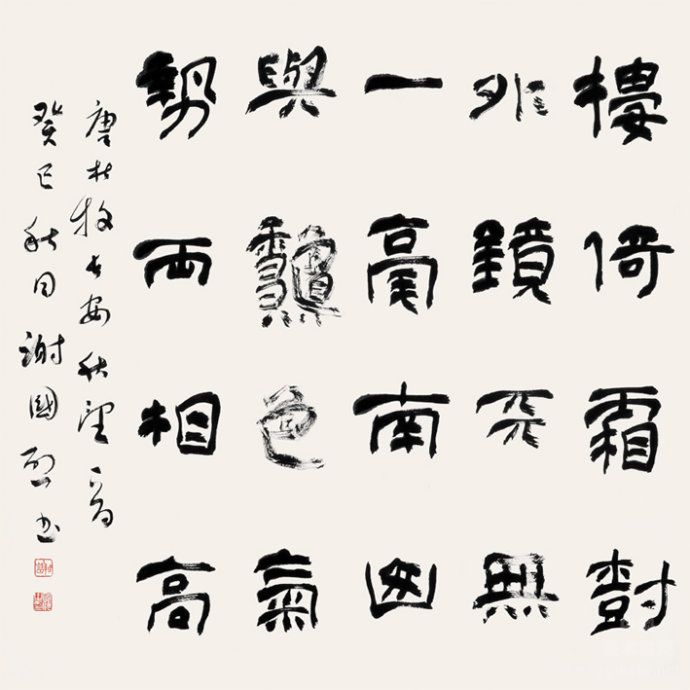 樓倚霜樹
外鏡天無
一毫南山
與龝色氣
勢兩相高
唐杜牧長安秋望一首
癸巳秋月謝國烈书